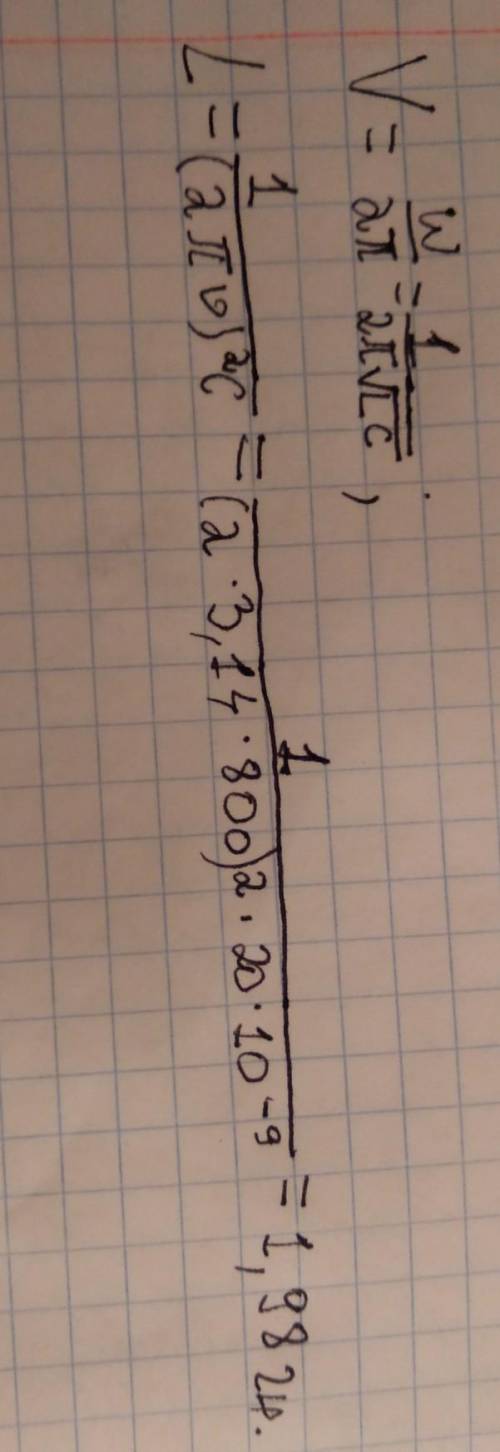 V = w/2π = 1/2π√LC ;
L = 1/(2πν)²C = 1/(2·3,14·800)2·20·10⁻⁹ = 1,982